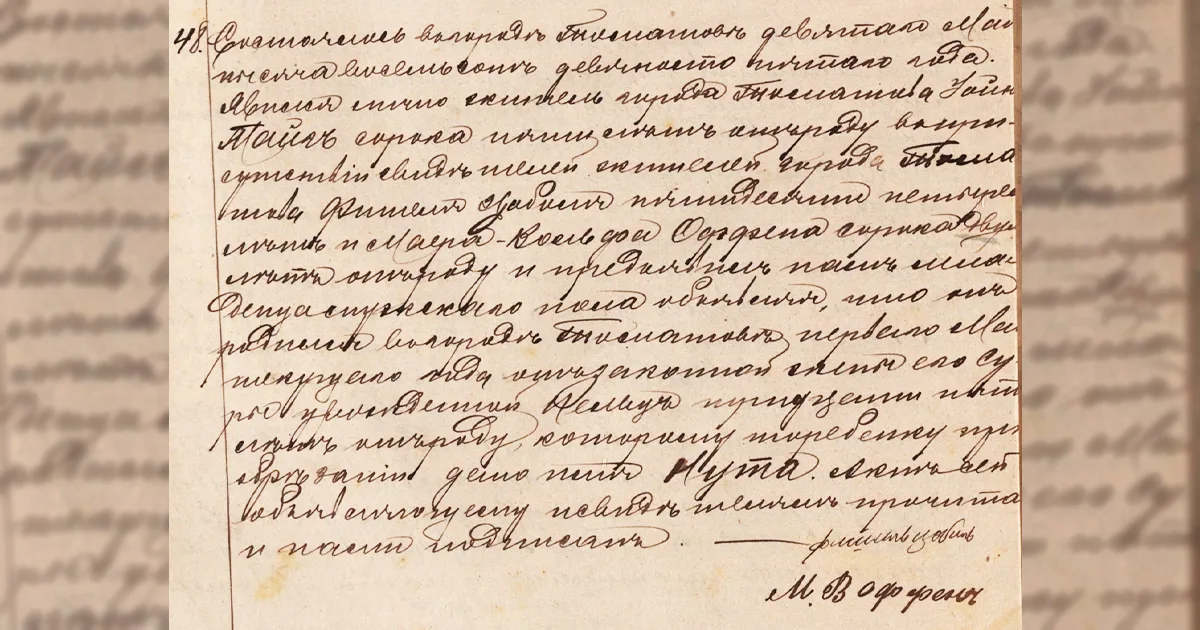 48. Состоялось вогородѣ Томашовѣ девятаго Мая
мѣсяца восемьсотъ девяносто пятаго года.
Явился лично житель города Томашова
сорока пяти лѣтъ отъроду вопри-
сутствіи свидѣтелей жителей города Тома
шова Фишеля Цобеля пятидесяти четырех
лѣтъ и Маера-Вольфа сорока двух
лѣтъ отъроду и предъявилъ намъ мла-
денца мужескаго пола объявляя, что онъ
родился вогородѣ Томашовѣ перваго Мая
текущаго года отъ законной жены его Су
ры урожденной тридцати пяти
лѣтъ отъроду, которому торебенку при
обрѣзаніи дано имя Нута. Актъ сей
объявляющему исвидѣтелямъ прочитан
и нами подписанъ. Фишель Цобель
М. Воффенъ